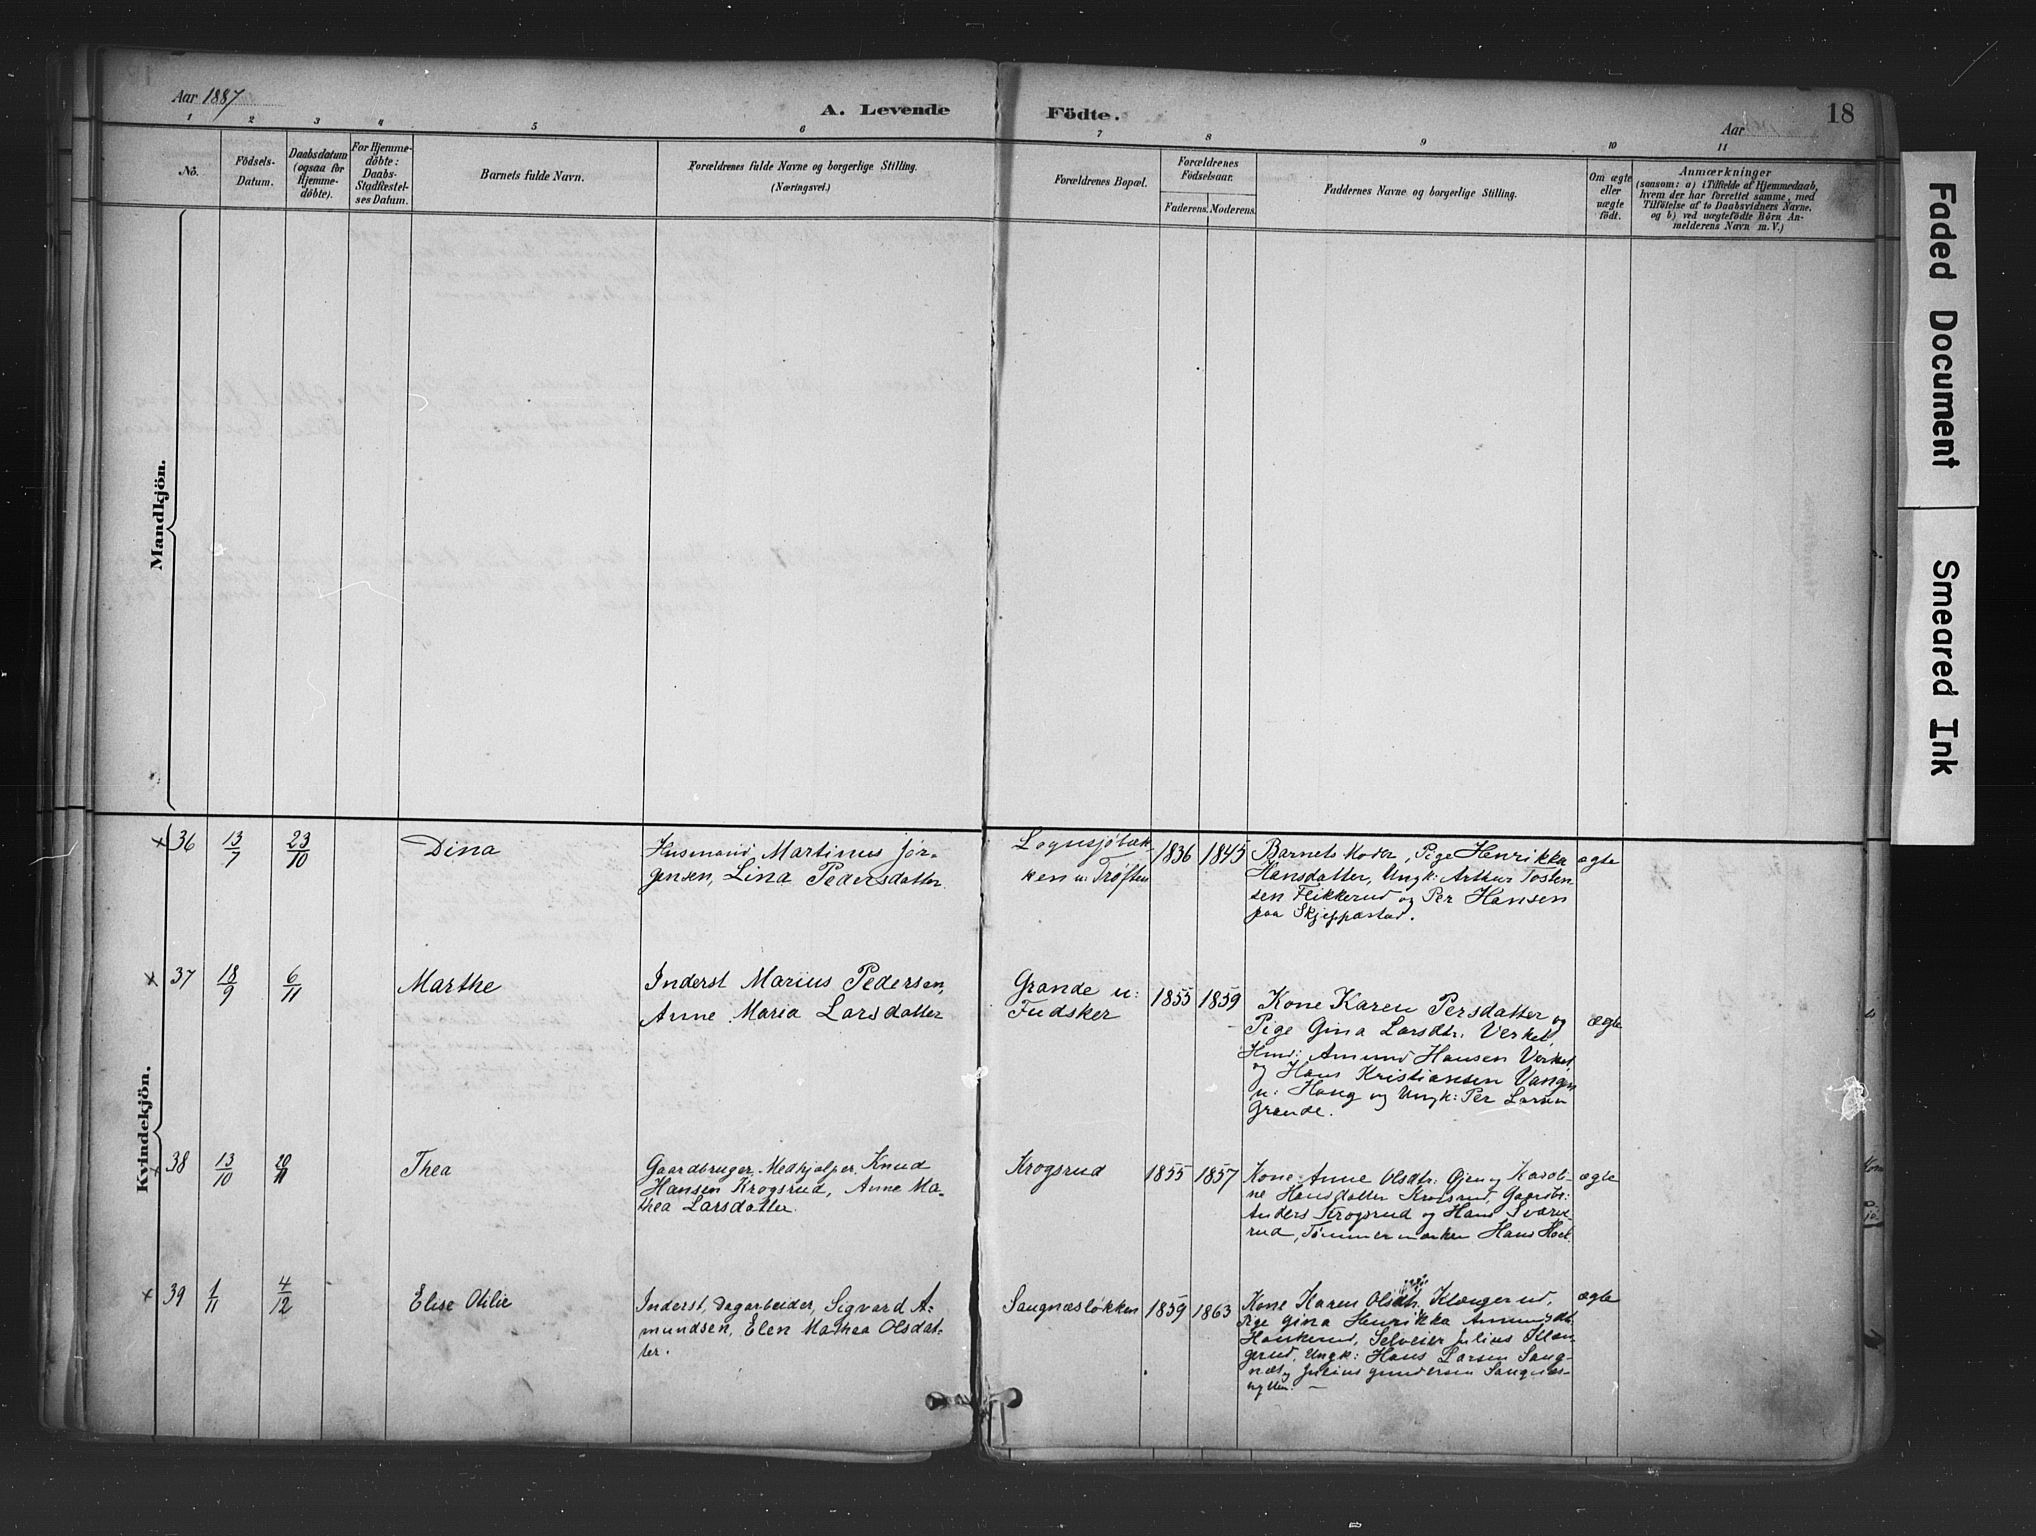 Aar 1887
A. Levende
Födte.
Aar
18
1 2 3 4 5 6 7 8 9 10 11
No.
Födsels-
Datum.
Daabsdatum
(ogsaa for
Hjemme-
döbte).
For Hjemme-
döbte:
Daabs-
Stadfæstel-
ses Datum.
Barnets fulde Navn.
Forældrenes fulde Navne og borgerlige Stilling.
(Næringsvei.)
Forældrenes Bopæl.
Forældrenes
Födselsaar.
Faderens. Moderens.
Faddernes Navne og borgerlige Stilling.
Om ægte
eller
uægte
født.
Anmærkninger
(saasom: a) i Tilfælde af Hjemmedaab,
hvem der har forrettet samme, med
Tilföielse af to Daabsvidners Navne,
og b) ved uægtefödte Börn An-
melderens Navn m. V.)
Mandkjön.
Kvindekjön.
36 13/7 23/10
Dina
Husmand Martinus Jör-
gensen, Lina Pedersdatter
ken u: Trøften
1836 1845
Barnets Moder, Pige Henrikka
Hansdatter, Ungk: Arthur Tosten
sen Flikkerud og Per Hansen
paa Skjeppæstad.
ægte
37 18/9 6/11
Marthe
Inderst Marius Pedersen,
Anne Maria Larsdatter
Grande u:
Fudsker
1855 1859
Kone Karen Persdatter og
Pige Gina Larsdtr. Verket,
Hmd: Amund Hansen Verket,
og Hans Kristiansen Vangen
u: Haug og Ungk: Per Larsen
Grande.
ægte
38 13/10 20/11
Thea
Gaardbruger, Medhjælper, Knud
Hansen Krogsrud, Anne Ma-
thea Larsdatter.
Krogsrud
1855 1857
Kone Anne Olsdtr: og Karoli-
ne Hansdatter Krogsrud, Gaardbr:
Anders Krogsrud og Hans Svære-
rud, Tømmermærker Hans Hoel.
ægte
39 1/11 4/12
Elise Otilie
Inderst, Dagarbeider, Sigvard A-
mundsen, Elen Mathea Olsdat-
ter.
Saugnæsløkken
1859 1863
Kone Karen Olsdtr. Klangerud,
Pige Gina Henrikka Amundsdt.
Haukerud, Selveier Julius
gerud, Ungk: Hans Larsen Saug-
næs og Julius Gundersen Saugnæs-
ægte
Faded Document
Smeared Ink